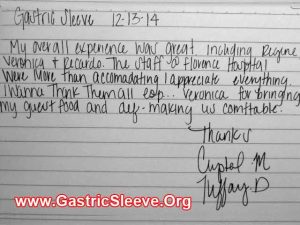 Gastric Sleeve 12-13-14
My overall experience was great including Regene
Veronica & Recardo. The Staff @ Florence Hospital
were more than accomadating I appreciate everything...
I wanna Thank Them all esp... Veronica for bringing
my guest food and def. making us comftable.
Thanks
Crystal M
Tiffay D
www.GastricSleeve.Org